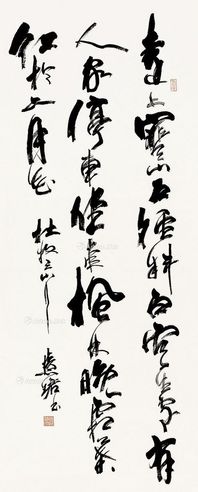 遠上寒山石徑斜白雲生處有
人家停車坐愛楓林晚霜葉
紅於二月花 杜牧之山行